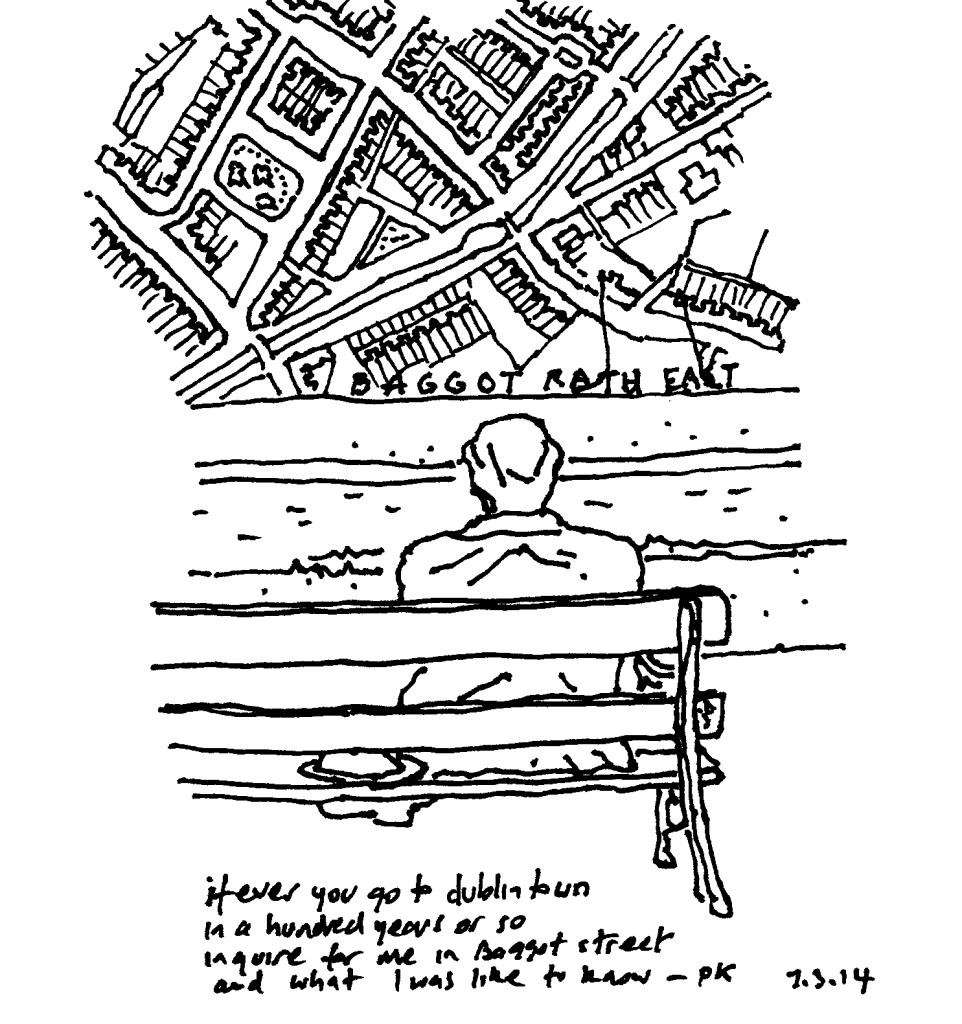 BAGGOT RATH EAST
if ever you go to dublin town
in a hundred years or so
inquire for me in Baggot street
and what I was like to know – PK 7.3.14